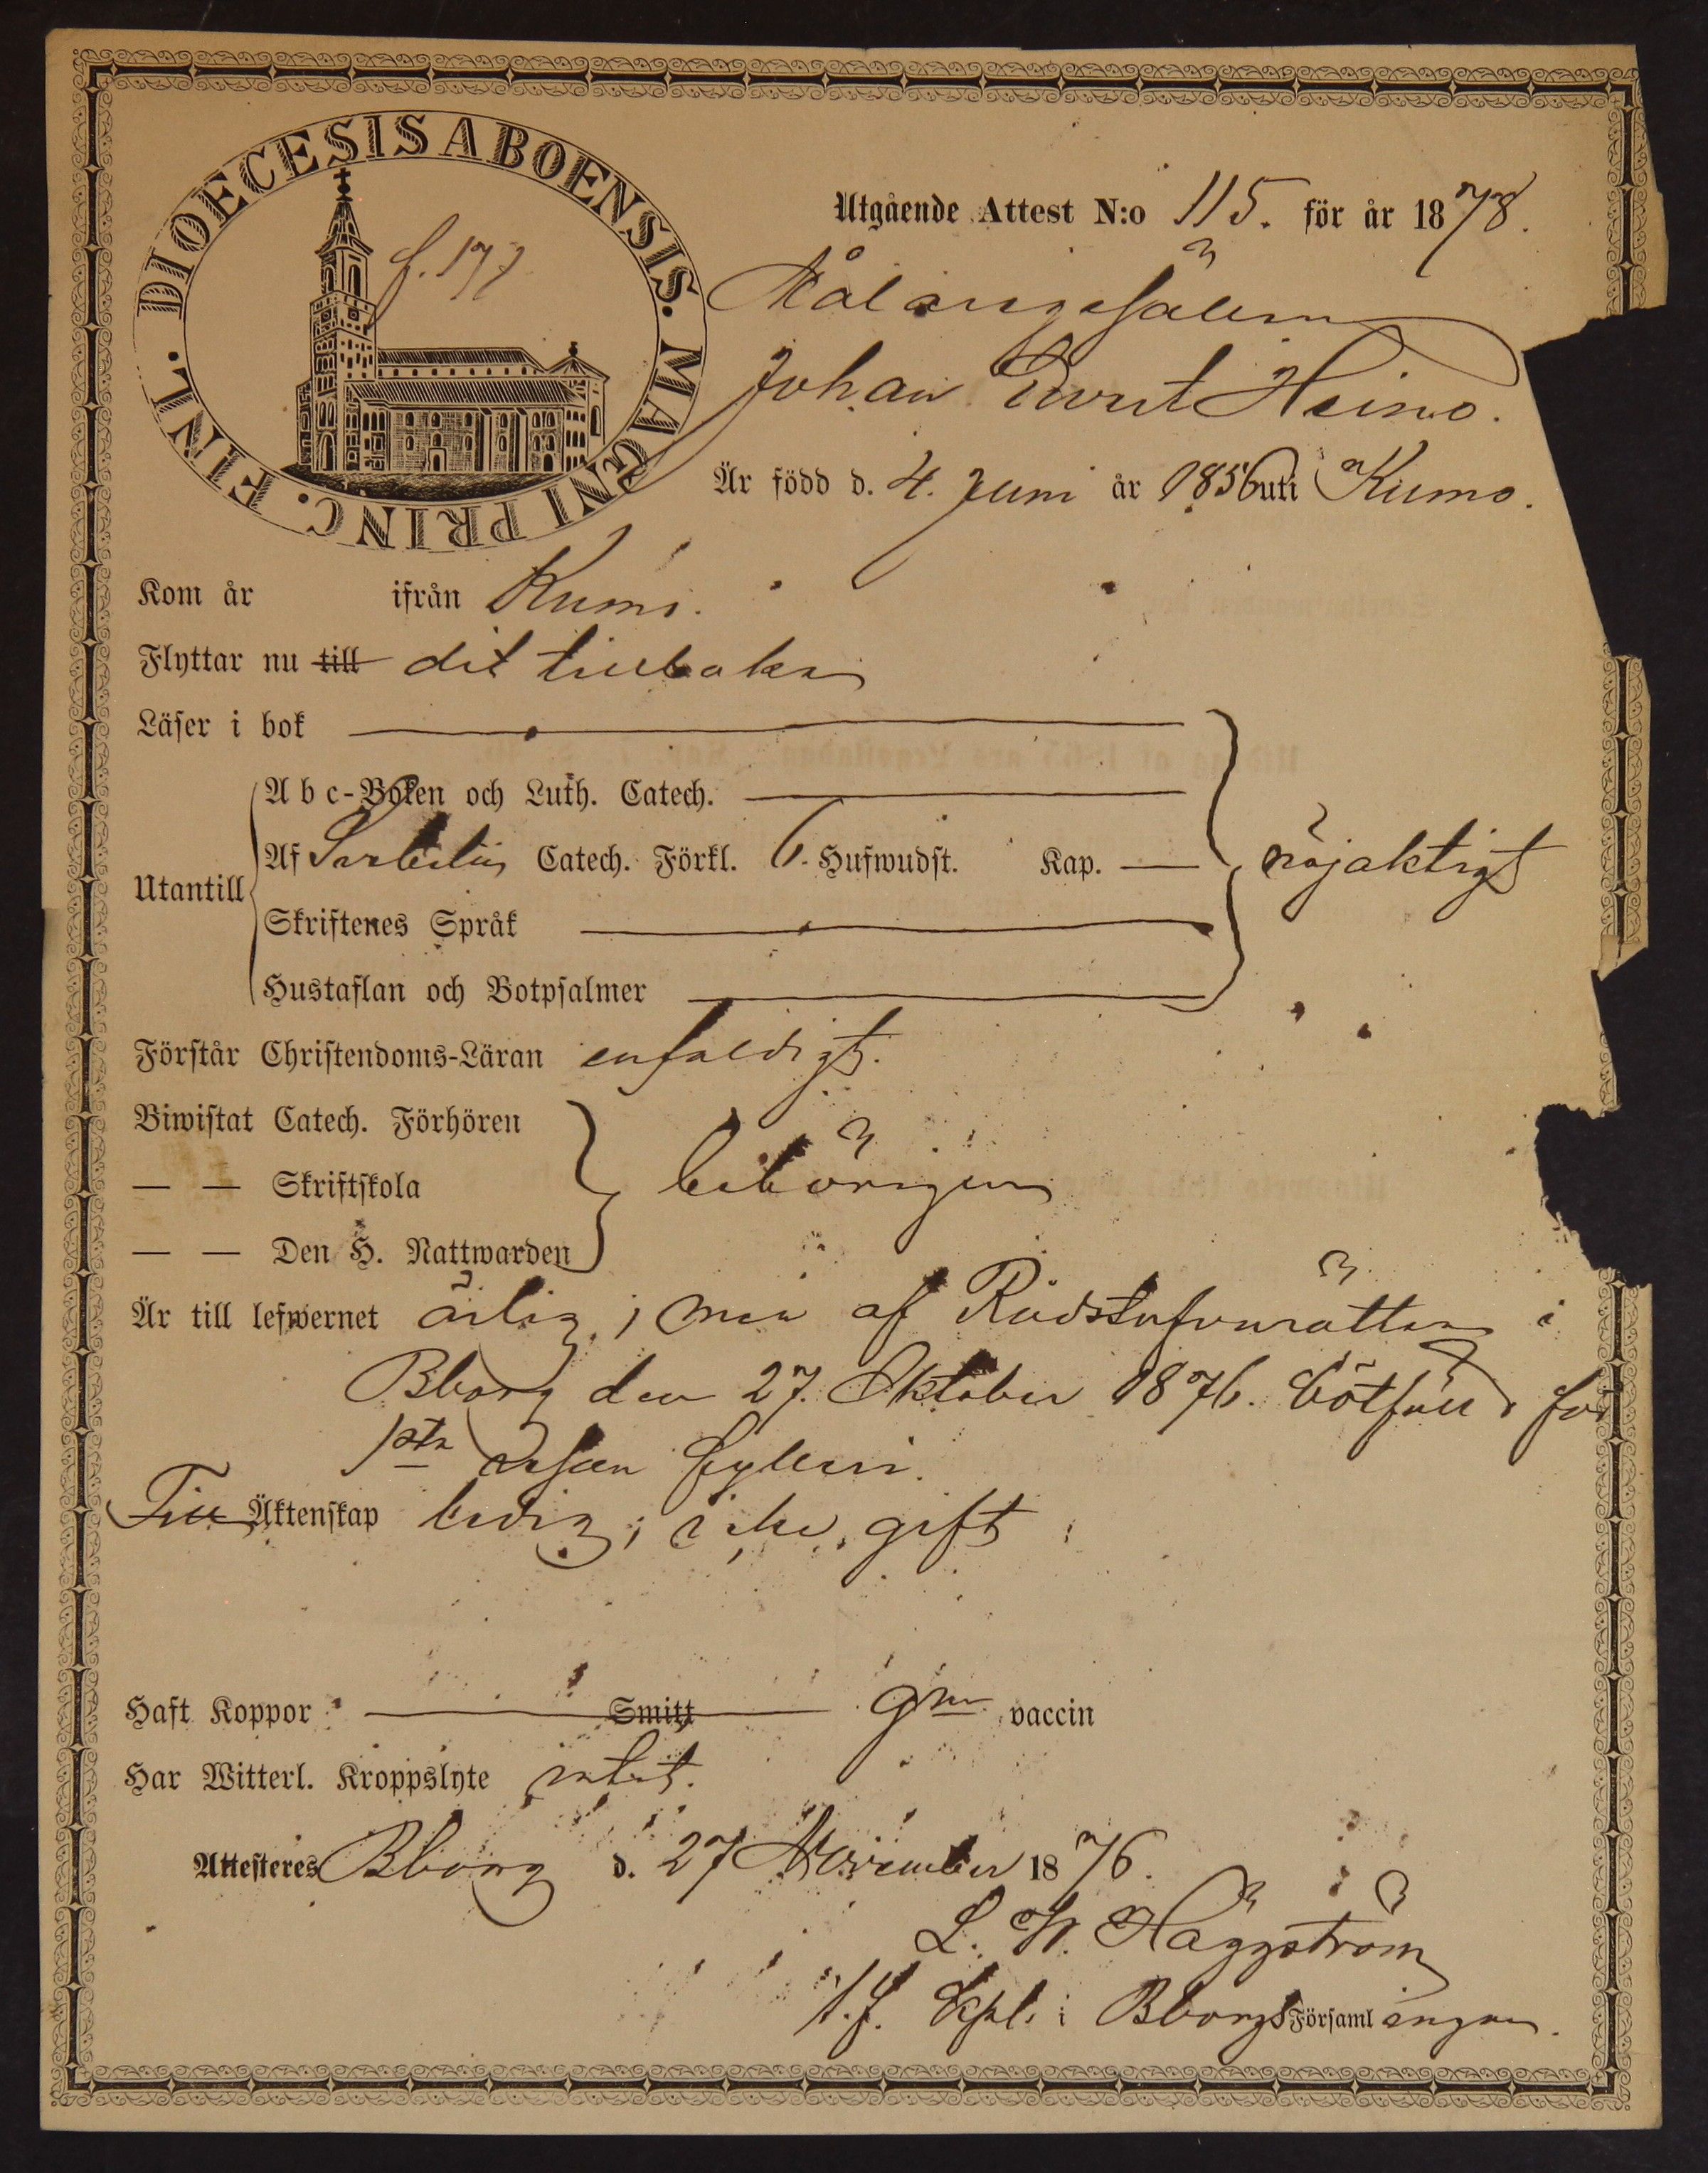 DIOECESIS ABOENSIS. MAGNI PRINC. FINL.
f. 177
Utgående Attest N:o 115. för år 1878.
Målaregesällen
Johan Evert Heino.
Är född d. 4. Juni år 1856 uti Kumo.
Kom år ifrån Kumo.
Flyttar nu till dit tillbaka
Läser i bok
Abc-Boken och Luth. Catech.
Utantill Af Sverbelii Catech. Förkl. 6. Hufwudst. Kap. — nöjaktigt
Skriftenes Språk
Hustaflan och Botpsalmer
Förstår Christendoms-Läran enfaldigt.
Biwistat Catech. Förhören
— — Skriftskola behörigen
— — Den H. Nattwarden
Är till lefwernet ärlig; men af Rådstufvurätten i
Bborg den 27. Oktober 1876. bötfäld för
1sta resan fylleri.
Till Äktenskap ledig; icke gift
Haft Koppor Smitt gm vaccin
Har Witterl. Kroppslyte intet.
Attesteres Bborg d. 27 November 1876.
L. W. Häggström
t.f. Kpl. i Bborgs Församlingen.